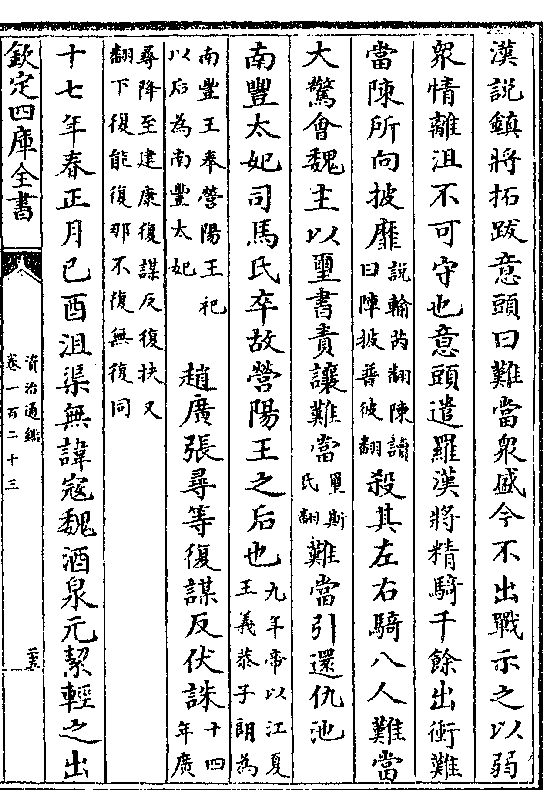 漢說鎮將拓跋意頭曰難當衆盛今不出戰示之以弱
衆情離沮不可守也意頭遣羅漢將精騎千餘出衝難
當陳所向披靡說輸芮翻陳讀曰陣披普彼翻殺其左右騎八人難當
大驚會魏主以璽書責讓難當璽斯氏翻難當引還仇池
南豐太妃司馬氏卒故營陽王之后也九年帝以江夏王義恭子朗為
南豐王奉營陽王祀以后為南豐太妃　趙廣張尋等復謀反伏誅十四年廣
尋降至建康復謀反復扶又翻下復能復那不復無復同
十七年春正月己酉沮渠無諱寇魏酒泉元絜輕之出
欽定四庫全書
資治通鑑
卷一百二十三